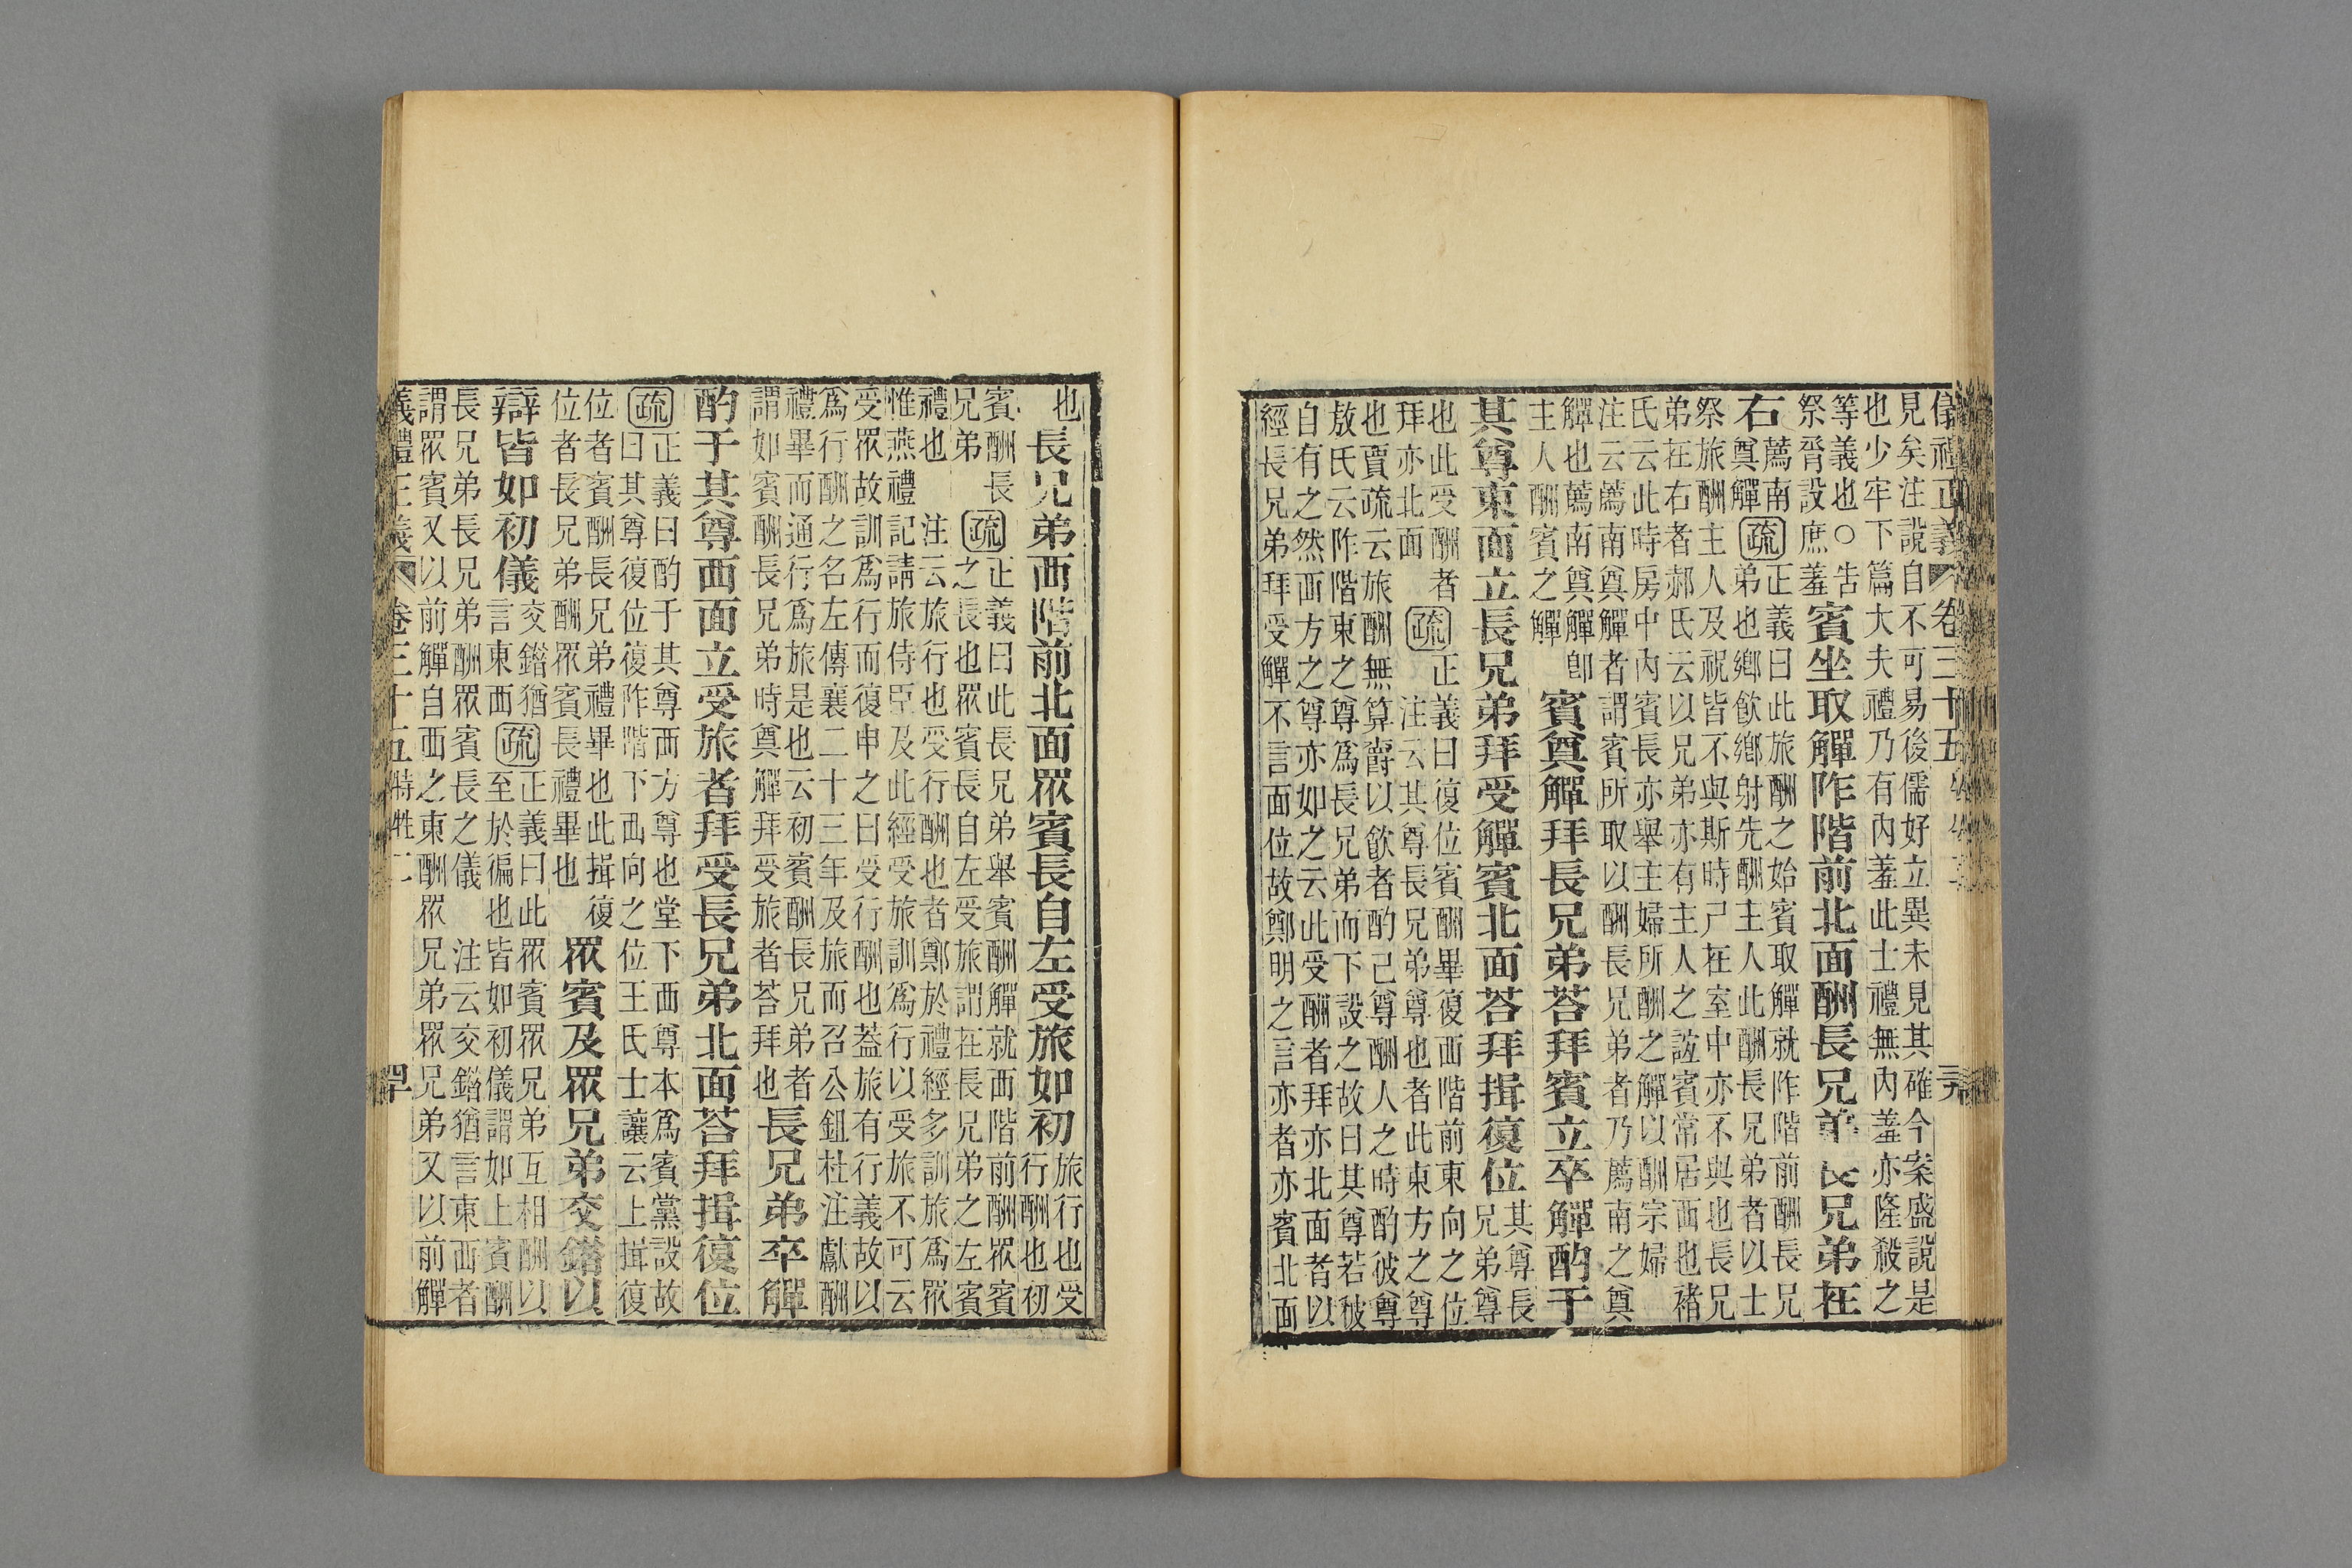 儀禮正義 卷三十五
見矣注說自不可易後儒好立異未見其確今案盛說是
也少牢下篇大夫禮乃有內羞此士禮無內羞亦隆殺之
等義也○告
祭脀設庶羞
賓坐取觶阼階前北面酬長兄弟長兄弟在
右
薦南
奠觶
疏
正義曰此旅酬之始賓取觶就阼階前酬長兄
弟也鄉飲鄉射先酬主人此酬長兄弟者以士
祭旅酬主人及祝皆不與斯時尸在室中亦不與也長兄
弟在右者郝氏云以兄弟亦有主人之誼賓常居西也褚
氏云此時房中內賓長亦舉主婦所酬之觶以酬宗婦
注云薦南奠觶者謂賓所取以酬長兄弟者乃薦南之奠
觶也薦南奠觶卽
主人酬賓之觶
賓奠觶拜長兄弟荅拜賓立卒觶酌于
其尊東面立長兄弟拜受觶賓北面荅拜揖復位
其尊長
兄弟尊
也此受酬者
拜亦北面
疏
正義曰復位賓酬畢復西階前東向之位
注云其尊長兄弟尊也者此東方之尊
也賈疏云旅酬無算爵以飲者酌己尊酬人之時酌彼尊
敖氏云阼階東之尊爲長兄弟而下設之故曰其尊若彼
自有之然西方之尊亦如之云此受酬者拜亦北面者以
經長兄弟拜受觶不言面位故鄭明之言亦者亦賓北面
也
長兄弟西階前北面眾賓長自左受旅如初
旅行也受
行酬也初
賓酬長
兄弟
疏
正義曰此長兄弟舉賓酬觶就西階前酬眾賓
之長也眾賓長自左受旅謂在長兄弟之左賓
禮也 注云旅行也受行酬也者鄭於禮經多訓旅爲眾
惟燕禮記請旅侍臣及此經受旅訓爲行以受旅不可云
受眾故訓爲行而復申之曰受行酬也蓋旅有行義故以
爲行酬之名左傳襄二十三年及旅而召公鉏杜注獻酬
禮畢而通行爲旅是也云初賓酬長兄弟者
謂如賓酬長兄弟時奠觶拜受旅者荅拜也
長兄弟卒觶
酌于其尊西面立受旅者拜受長兄弟北面荅拜揖復位
疏
正義曰酌于其尊西方尊也堂下西尊本爲賓黨設故
曰其尊復位復阼階下西向之位王氏士讓云上揖復
位者賓酬長兄弟禮畢也此揖復
位者長兄弟酬眾賓長禮畢也
眾賓及眾兄弟交錯以
辯皆如初儀
交錯猶
言東西
疏
正義曰此眾賓眾兄弟互相酬以
至於徧也皆如初儀謂如上賓酬
長兄弟長兄弟酬眾賓長之儀 注云交錯猶言東西者
謂眾賓又以前觶自西之東酬眾兄弟眾兄弟又以前觶
儀禮正義 卷三十五 特牲二